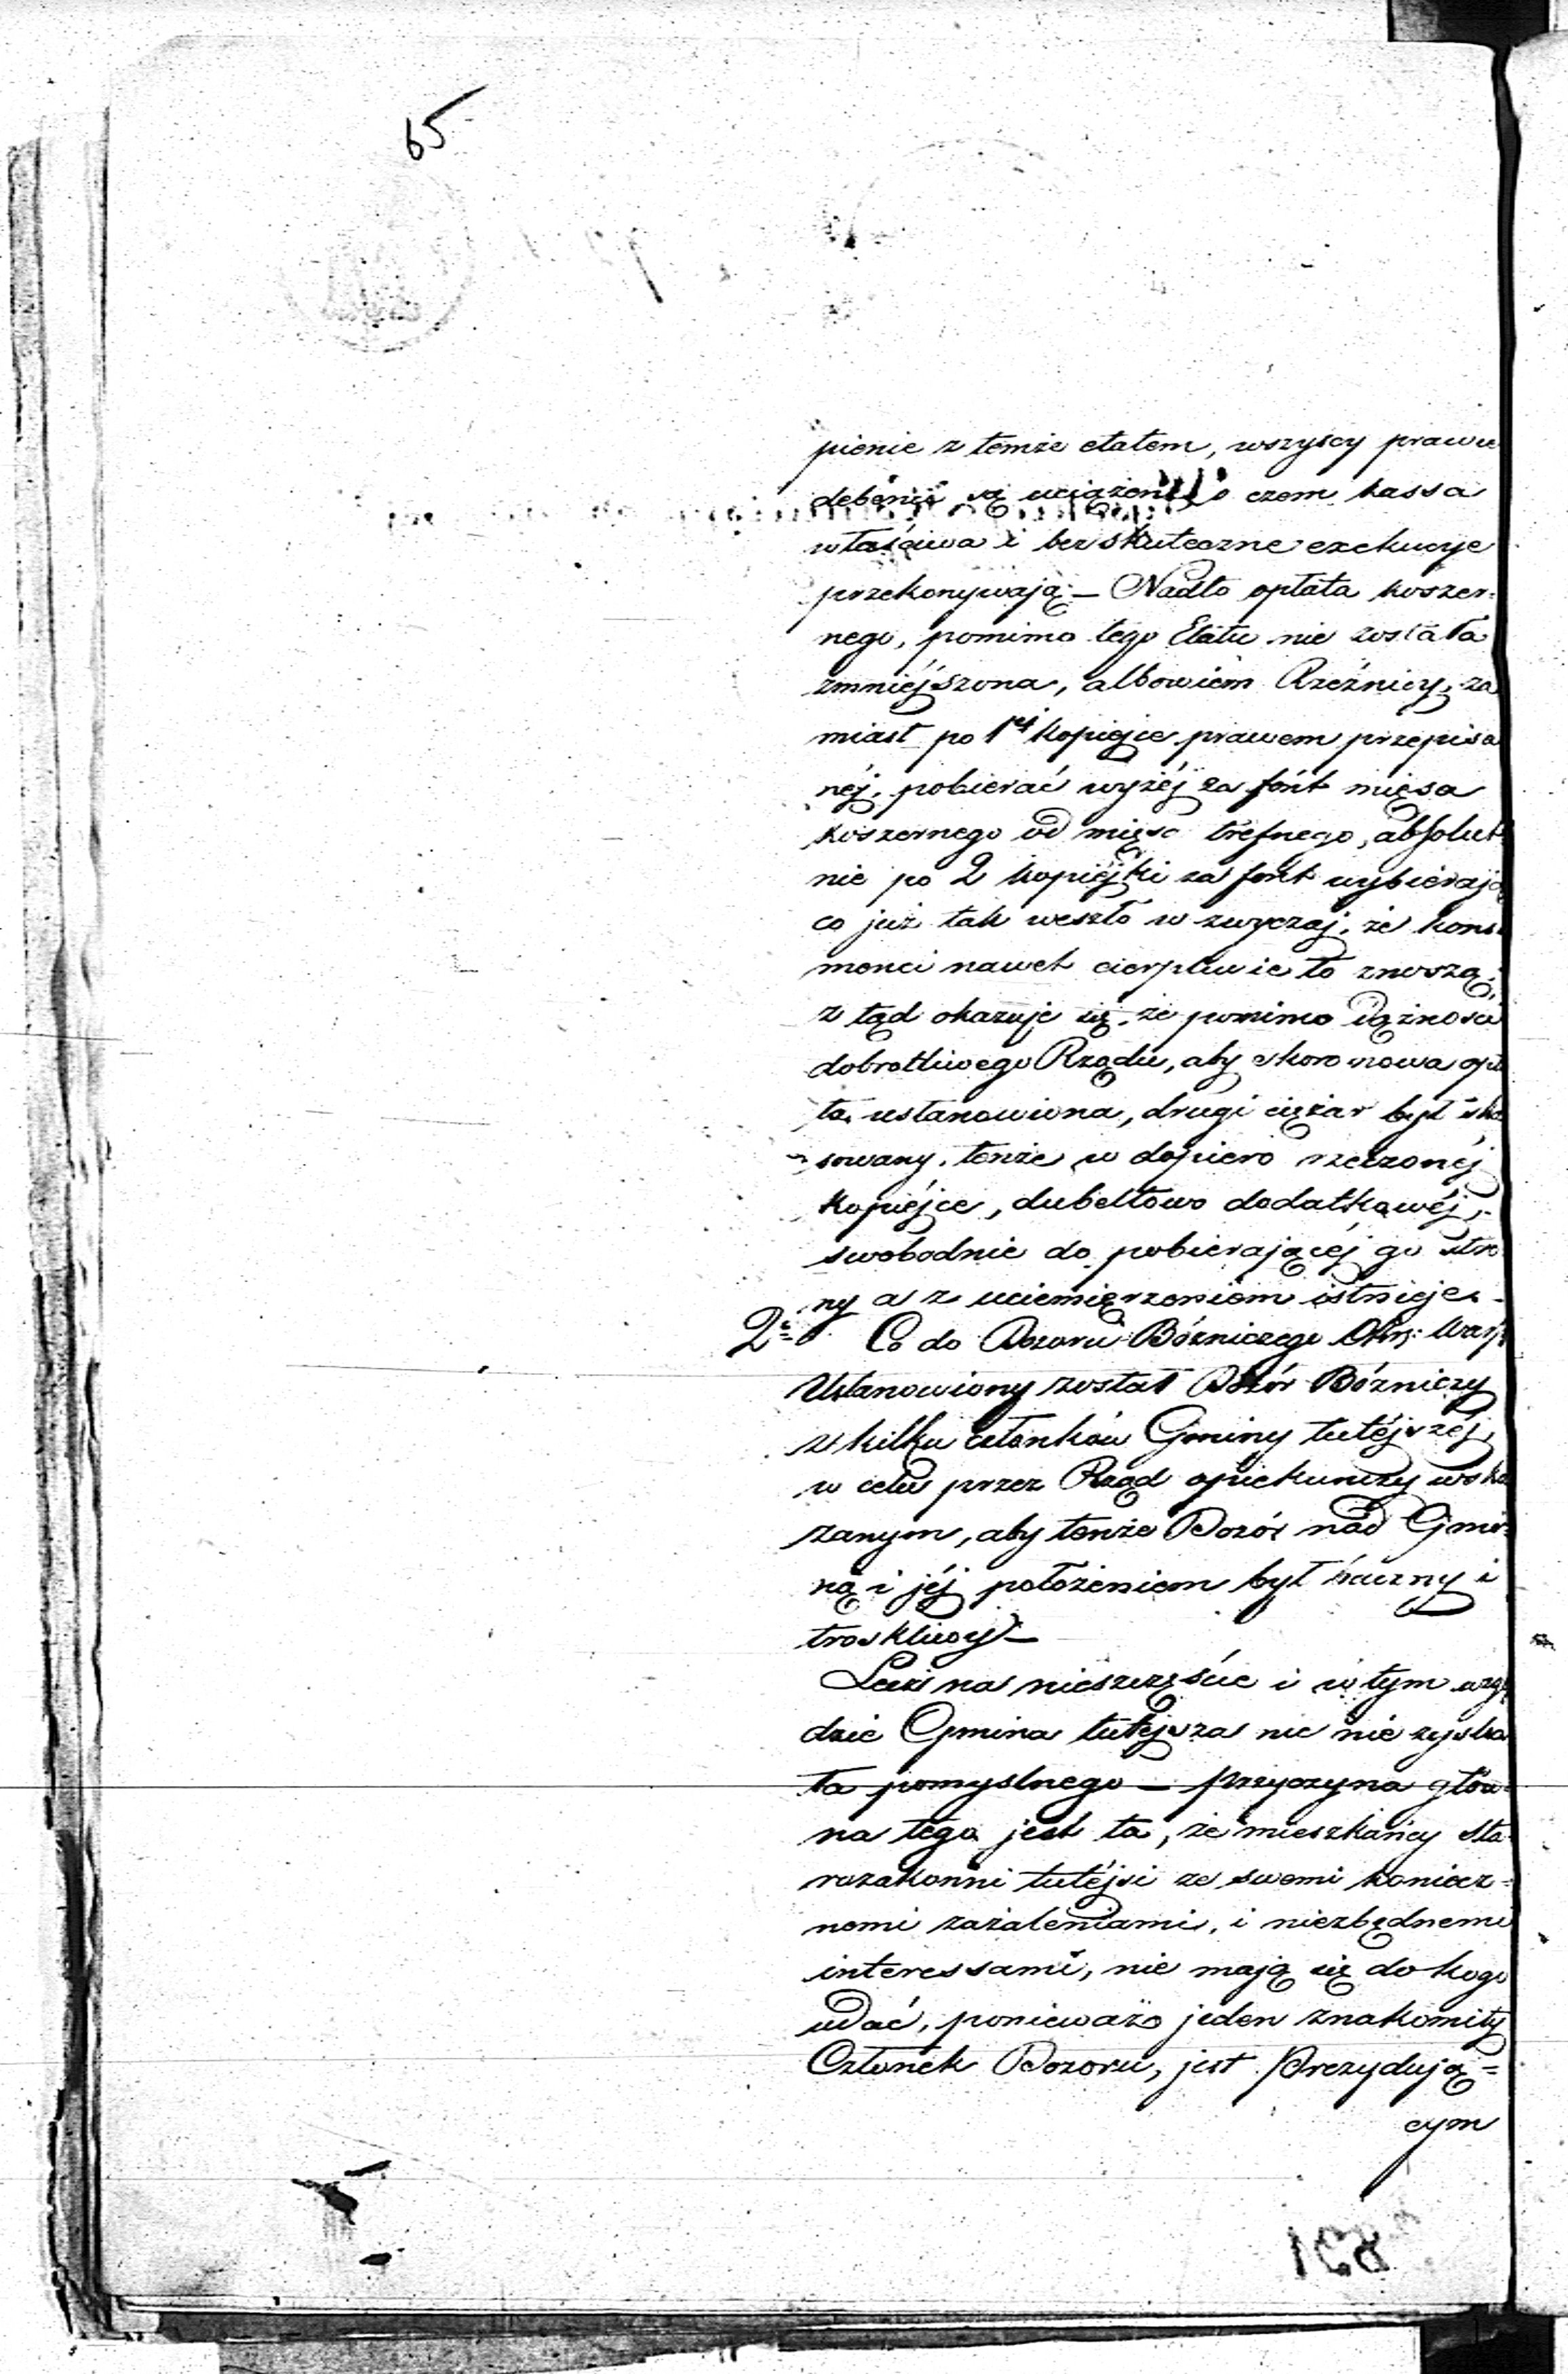 65
pienie z temże etatem, wszyscy prawie
debenci są uciążeni, o czem kassa
właściwa i bezskuteczne exekucye
przekonywają — Nadto opłata koszer-
nego, pomimo tego Etatu nie została
zmniéjszona, albowiem Rzeźnicy, za
miast po 1éj kopiejce prawem przepisa
néj, pobierać wyżéj za font mięsa
koszernego od mięsa trefnego, absolut
nie po 2 kopiéjki za font wybierają
co już tak weszło w zwyczaj, że kons
menci nawet cierpliwie to znoszą;
z tąd okazuje się, że pomimo dążności
dobrotliwego Rządu, aby skoro nowa opła
ta ustanowiona, drugi ciężar był ska
sowany, tenże w dopiero rzeczonéj
kopiéjce, dubeltowo dodatkowéj,
swobodnie do pobierającéj go stro
ny a z uciemiężeniem istnieje.
2. Co do Dozoru Bózniczego Okr: Warsz
Ustanowiony został Dozór Bózniczy
z kilku członków Gminy tutéjszéj,
w celu przez Rząd opiekunczy wska
zanym, aby tenże Dozór nad Gmi-
ną i jéj położeniem był baczny i
troskliwy —
Lecz na nieszczęście i w tym wzglę
dzie Gmina tutejsza nic nie zyska
ła pomyslnego — przyczyna głów-
na tego jest ta, że mieszkańcy sta
rozakonni tutéjsi ze swemi koniecz=
nemi zażaleniami, i niezbędnemi
interessami, nie mają się do kogo
udać, ponieważ jeden znakomity
Członek Dozoru, jest Prezydują=
cym
821